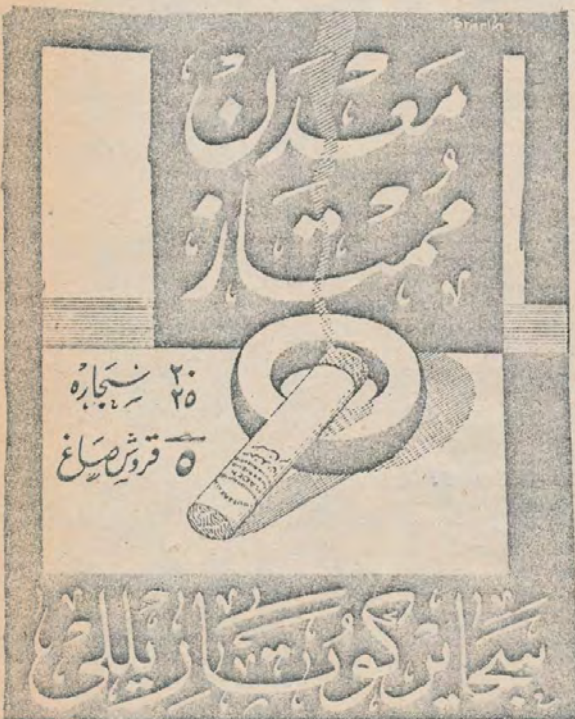 معدن
ممتاز
٢٠ سجاره
٢٥
٥ قروش صاغ
سجاير كوتاريللي